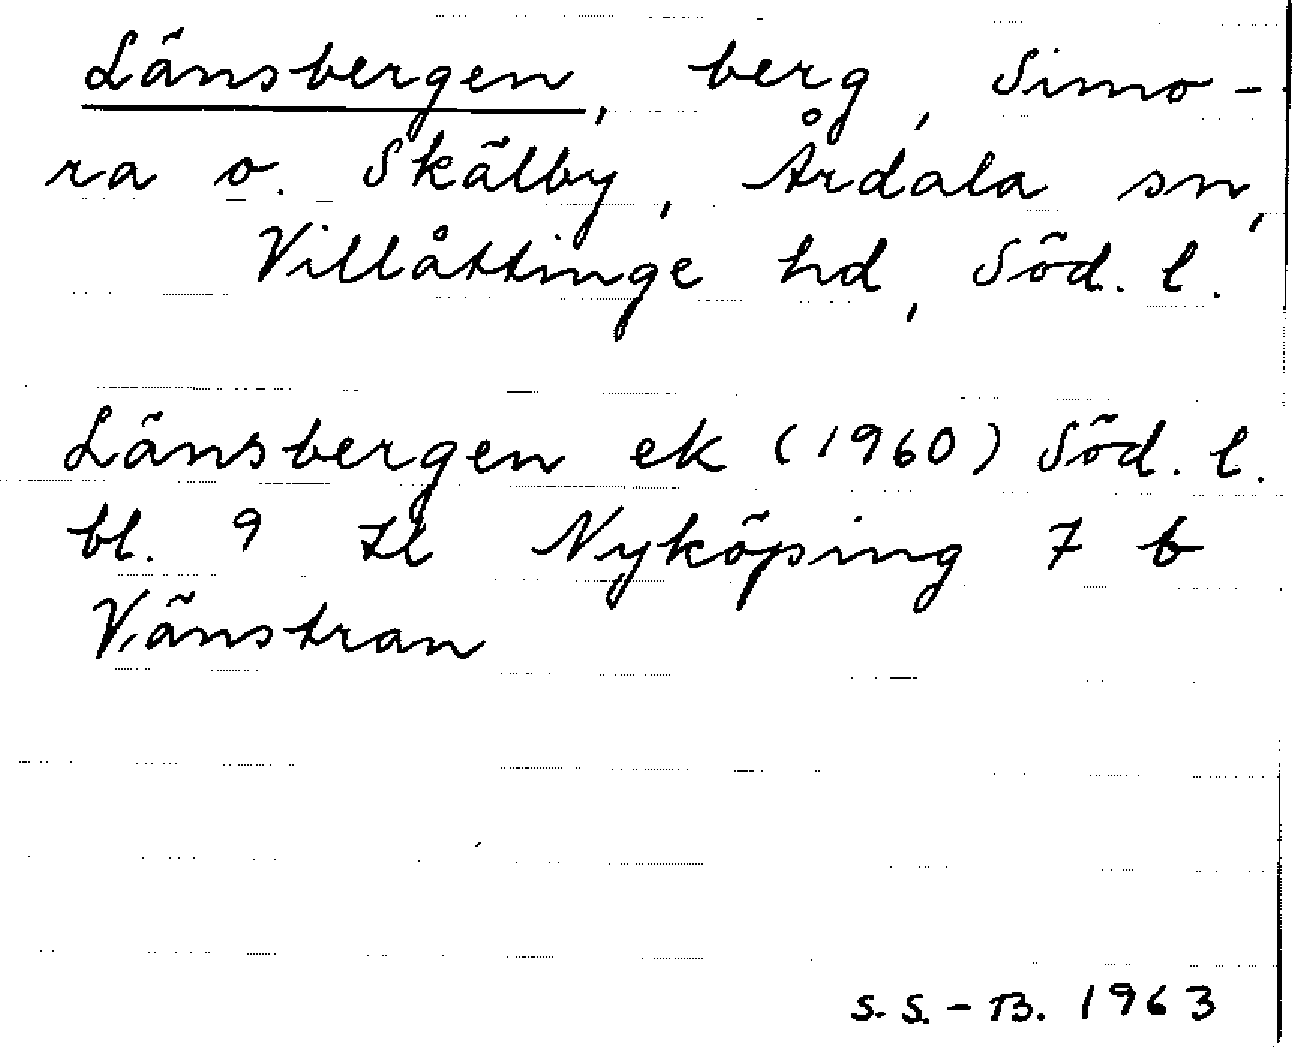 Länsbergen, berg, Simo-
ra o. Skälby, Årdala sn,
Villåttinge hd, Söd. l.
Länsbergen ek (1960) Söd. l.
bl. 9 Il Nyköping 7 b
Vänstran
S. S. - B. 1963